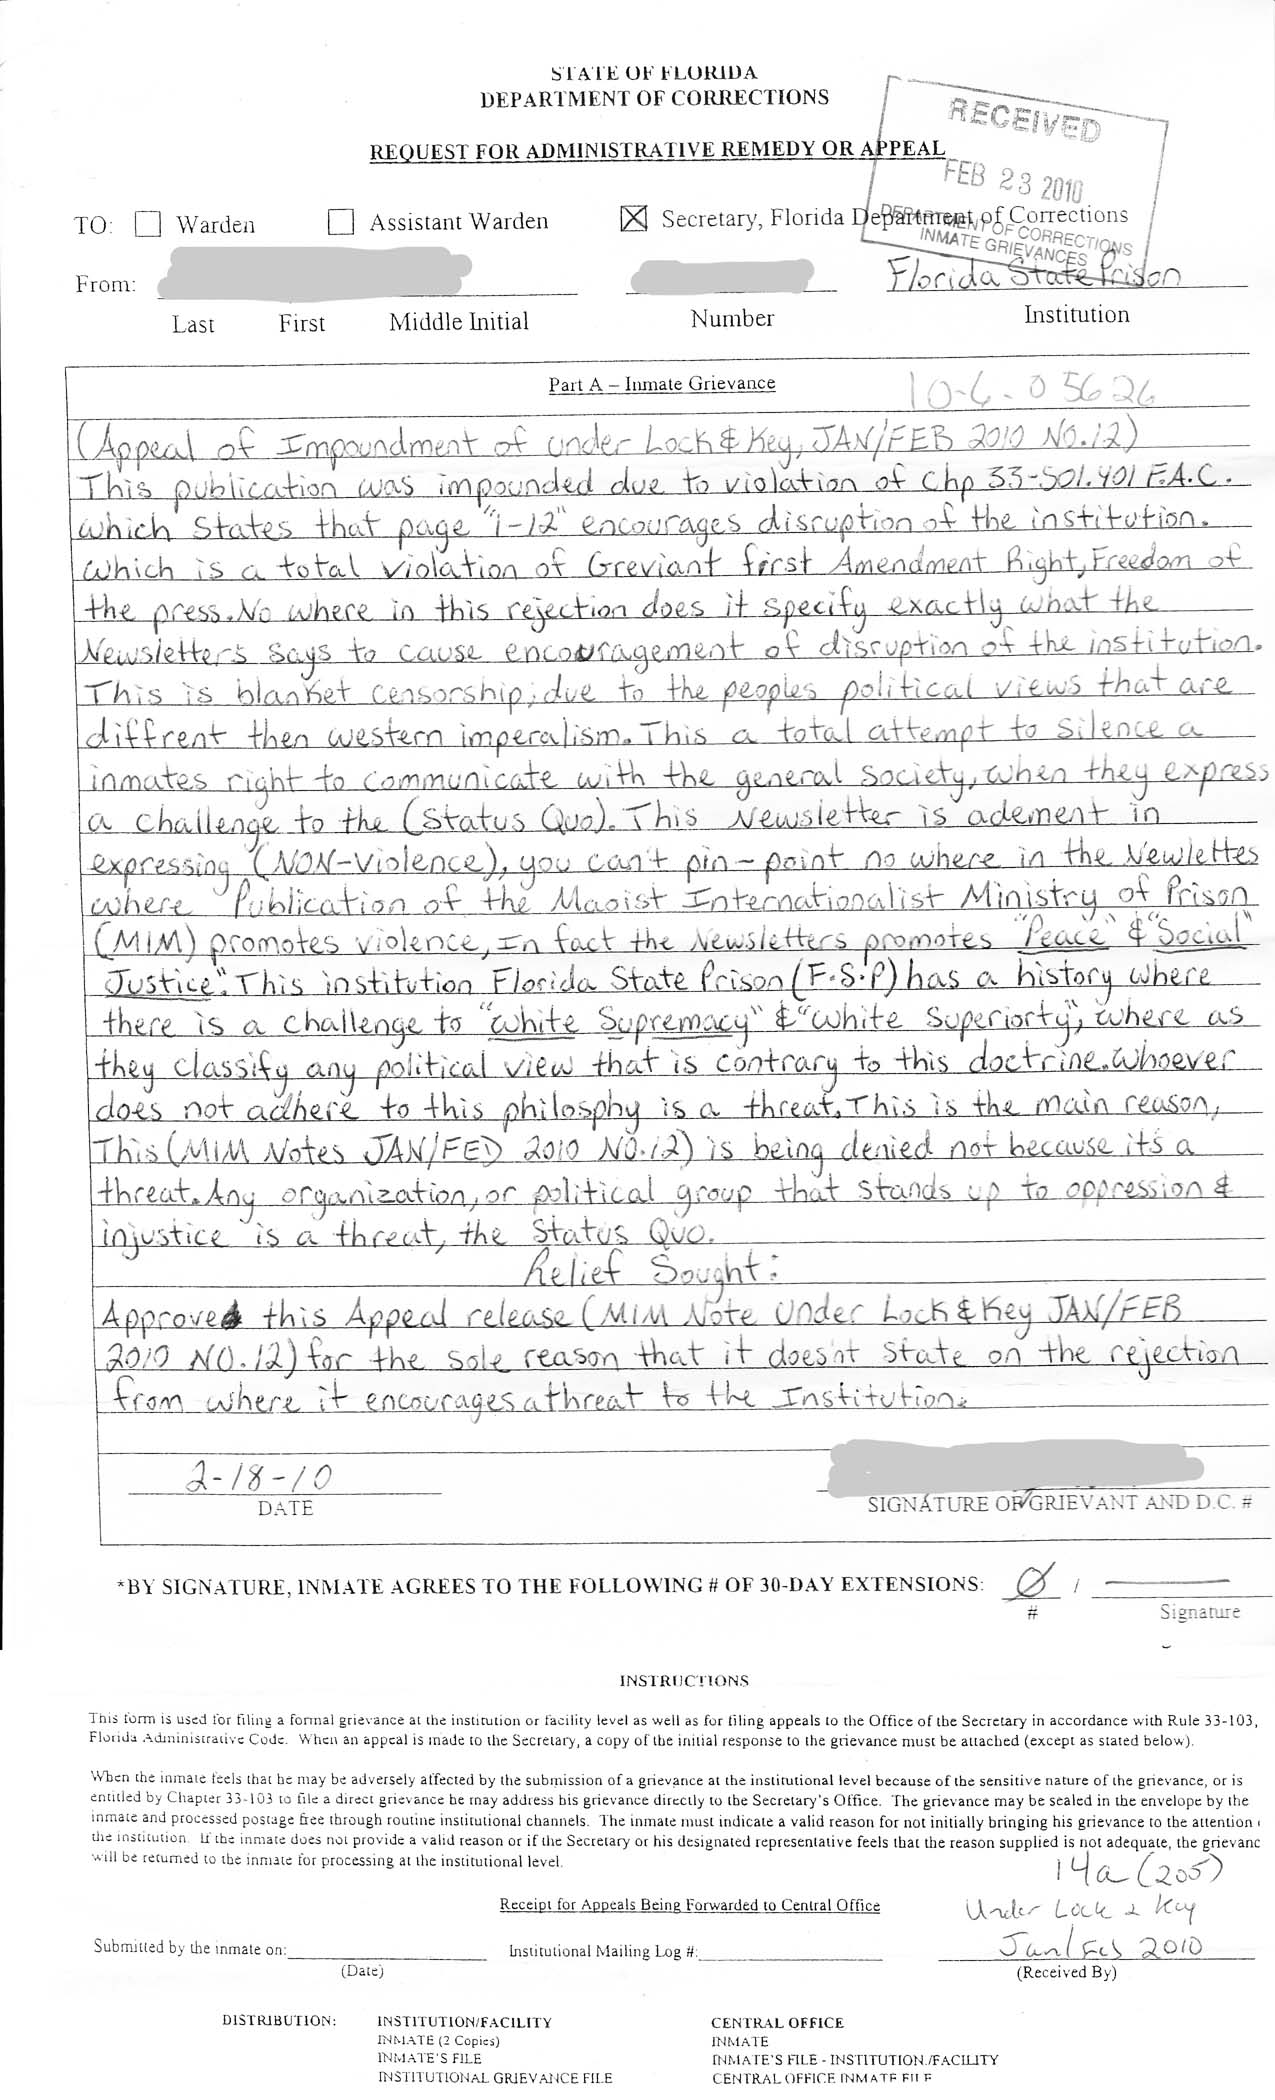 STATE OF FLORIDA
DEPARTMENT OF CORRECTIONS
REQUEST FOR ADMINISTRATIVE REMEDY OR APPEAL
RECEIVED
FEB 23 2010
DEPARTMENT OF CORRECTIONS
INMATE GRIEVANCES
TO: Warden Assistant Warden Secretary, Florida Department of Corrections
From: Florida State Prison
Last First Middle Initial Number Institution
Part A – Inmate Grievance 10-6-05626
(Appeal of Impoundment of Under Lock & Key, JAN/FEB 2010 NO.12)
This publication was impounded due to violation of Chp 33-501.401 F.A.C.
which States that page "1-12" encourages disruption of the institution.
which is a total violation of Greviant first Amendment Right, Freedom of
the press. No where in this rejection does it specify exactly what the
Newsletters says to cause encouragement of disruption of the institution.
This is blanket censorship; due to the peoples political views that are
diffrent then western imperalism. This a total attempt to silence a
inmates right to communicate with the general society, when they express
a challenge to the (Status Quo). This Newsletter is adement in
expressing (NON-Violence), you can't pin-point no where in the Newlettes
where Publication of the Maoist Internationalist Ministry of Prison
(MIM) promotes violence, In fact the Newsletters promotes "Peace" & "Social"
Justice". This institution Florida State Prison (F.S.P) has a history where
there is a challenge to "White Supremacy" & "White Superiorty", where as
they classify any political view that is contrary to this doctrine. Whoever
does not adhere to this philosphy is a threat. This is the main reason,
This (MIM Notes JAN/FED 2010 NO.12) is being denied not because it's a
threat. Any organization, or political group that stands up to oppression &
injustice is a threat, the Status Quo.
Relief Sought:
Approve this Appeal release (MIM Note Under Lock & Key JAN/FEB
2010 NO.12) for the sole reason that it does'nt State on the rejection
from where it encourages a threat to the Institution.
2-18-10
DATE SIGNATURE OF GRIEVANT AND D.C. #
*BY SIGNATURE, INMATE AGREES TO THE FOLLOWING # OF 30-DAY EXTENSIONS: 0 /
# Signature
INSTRUCTIONS
This form is used for filing a formal grievance at the institution or facility level as well as for filing appeals to the Office of the Secretary in accordance with Rule 33-103,
Florida Administrative Code. When an appeal is made to the Secretary, a copy of the initial response to the grievance must be attached (except as stated below).
When the inmate feels that he may be adversely affected by the submission of a grievance at the institutional level because of the sensitive nature of the grievance, or is
entitled by Chapter 33-103 to file a direct grievance he may address his grievance directly to the Secretary's Office. The grievance may be sealed in the envelope by the
inmate and processed postage free through routine institutional channels. The inmate must indicate a valid reason for not initially bringing his grievance to the attention
the institution. If the inmate does not provide a valid reason or if the Secretary or his designated representative feels that the reason supplied is not adequate, the grievanc
will be returned to the inmate for processing at the institutional level.
14a (205)
Receipt for Appeals Being Forwarded to Central Office Under Lock & Key
Submitted by the inmate on: Institutional Mailing Log #: Jan/Feb 2010
(Date) (Received By)
DISTRIBUTION: INSTITUTION/FACILITY CENTRAL OFFICE
INMATE (2 Copies) INMATE
INMATE'S FILE INMATE'S FILE - INSTITUTION./FACILITY
INSTITUTIONAL GRIEVANCE FILE CENTRAL OFFICE INMATE FILE